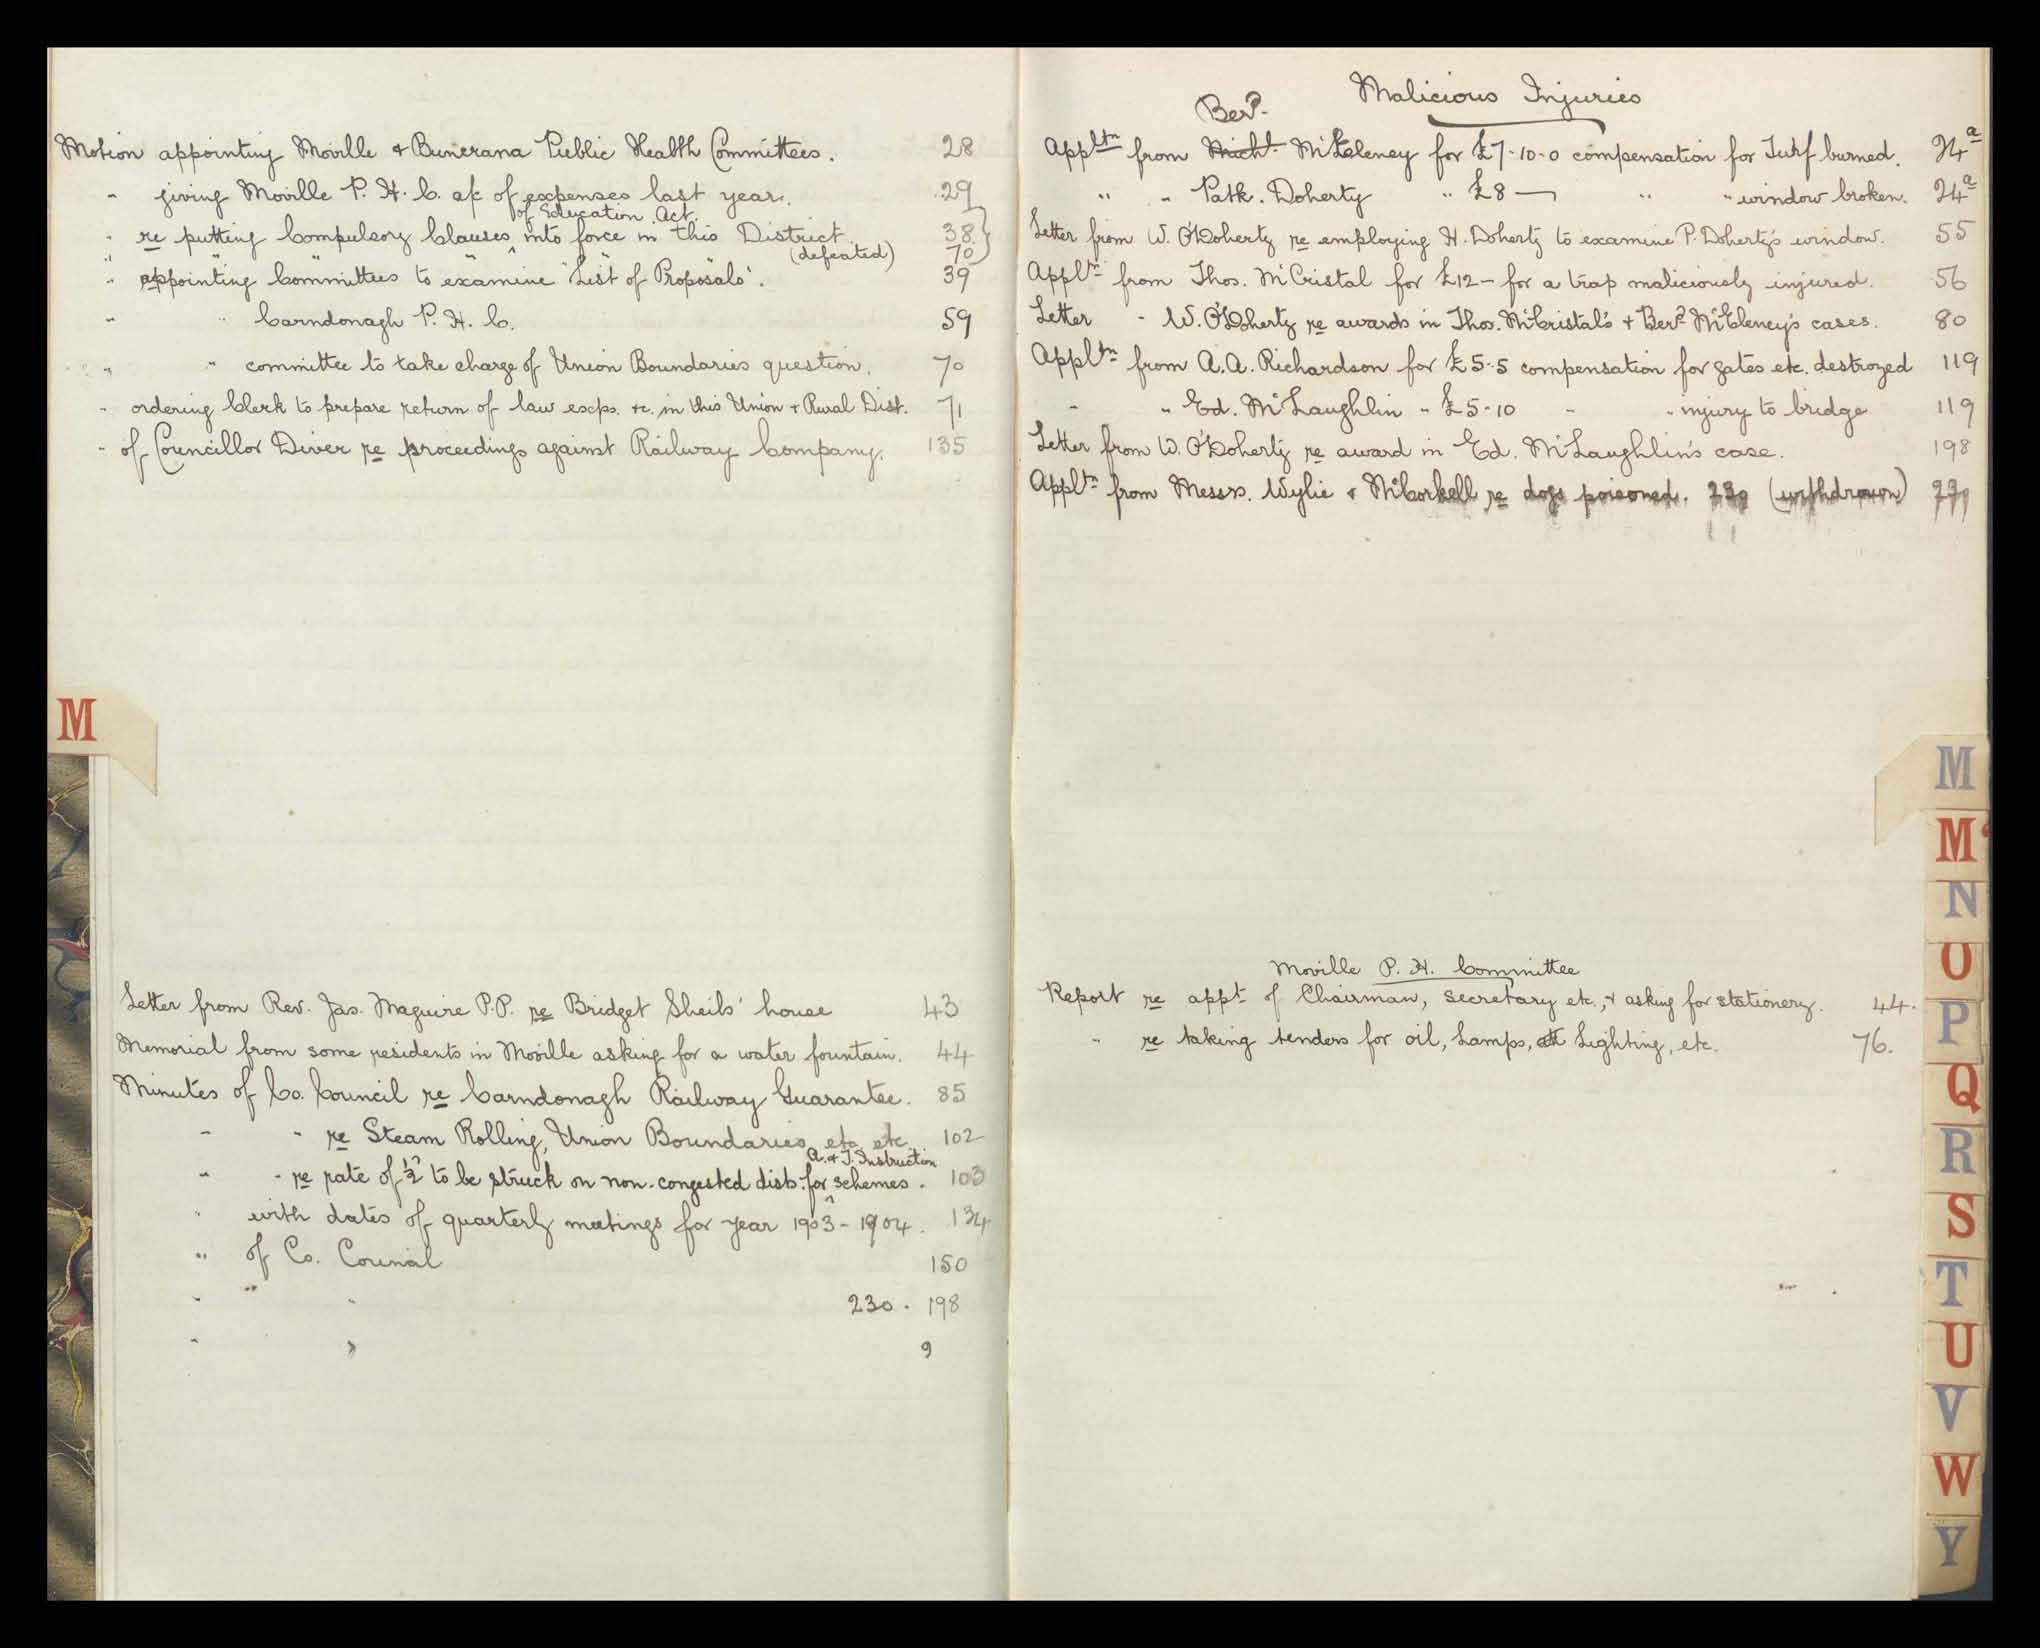 Motion appointing Moville & Buncrana Public Health Committees. 28
" giving Moville P. H. C. a/c of expenses last year. 29
of Education Act.
" re putting Compulsory Clauses ^ into force in this District 38
" " " " " (defeated) 70
" appointing Committees to examine "List of Proposals". 39
" " Carndonagh P. H. C. 59
" " committee to take charge of Union Boundaries question. 70
" ordering Clerk to prepare return of law exps. &c. in this Union & Rural Dist. 71
" of Councillor Diver re proceedings against Railway Company. 135
M
Letter from Rev. Jas. Maguire P.P. re Bridget Sheils' house 43
Memorial from some residents in Moville asking for a water fountain. 44
Minutes of Co. Council re Carndonagh Railway Guarantee. 85
" " re Steam Rolling, Union Boundaries etc etc 102
A. & T. Instruction
" " re rate of ½ᵈ to be struck on non-congested dists. for ^ schemes. 103
" with dates of quarterly meetings for year 1903-1904. 134
" of Co. Council 150
" " " 230. 198
" " 9
Malicious Injuries
Berᵈ
Appltn from Michl. McEleney for £7-10-0 compensation for Turf burned. 24a
" " Patk. Doherty " £8 — " " window broken. 24a
Letter from W. O'Doherty re employing H. Doherty to examine P. Doherty's window. 55
Appltn from Thos. McCristal for £12- for a trap maliciously injured. 56
Letter " W. O'Doherty re awards in Thos. McCristal's & Berᵈ McEleney's cases. 80
Appltn from A.A. Richardson for £5-5 compensation for gates etc. destroyed 119
" " Ed. McLaughlin " £5-10 " " injury to bridge 119
Letter from W. O'Doherty re award in Ed. McLaughlin's case. 198
Appltn from Messrs. Wylie & McCorkell re dogs poisoned. 230 (withdrawn)
Moville P. H. Committee
Report re appt of Chairman, Secretary etc., & asking for stationery. 44.
" re taking tenders for oil, Lamps, Lighting, etc. 76.
M
Mc
N
O
P
Q
R
S
T
U
V
W
Y